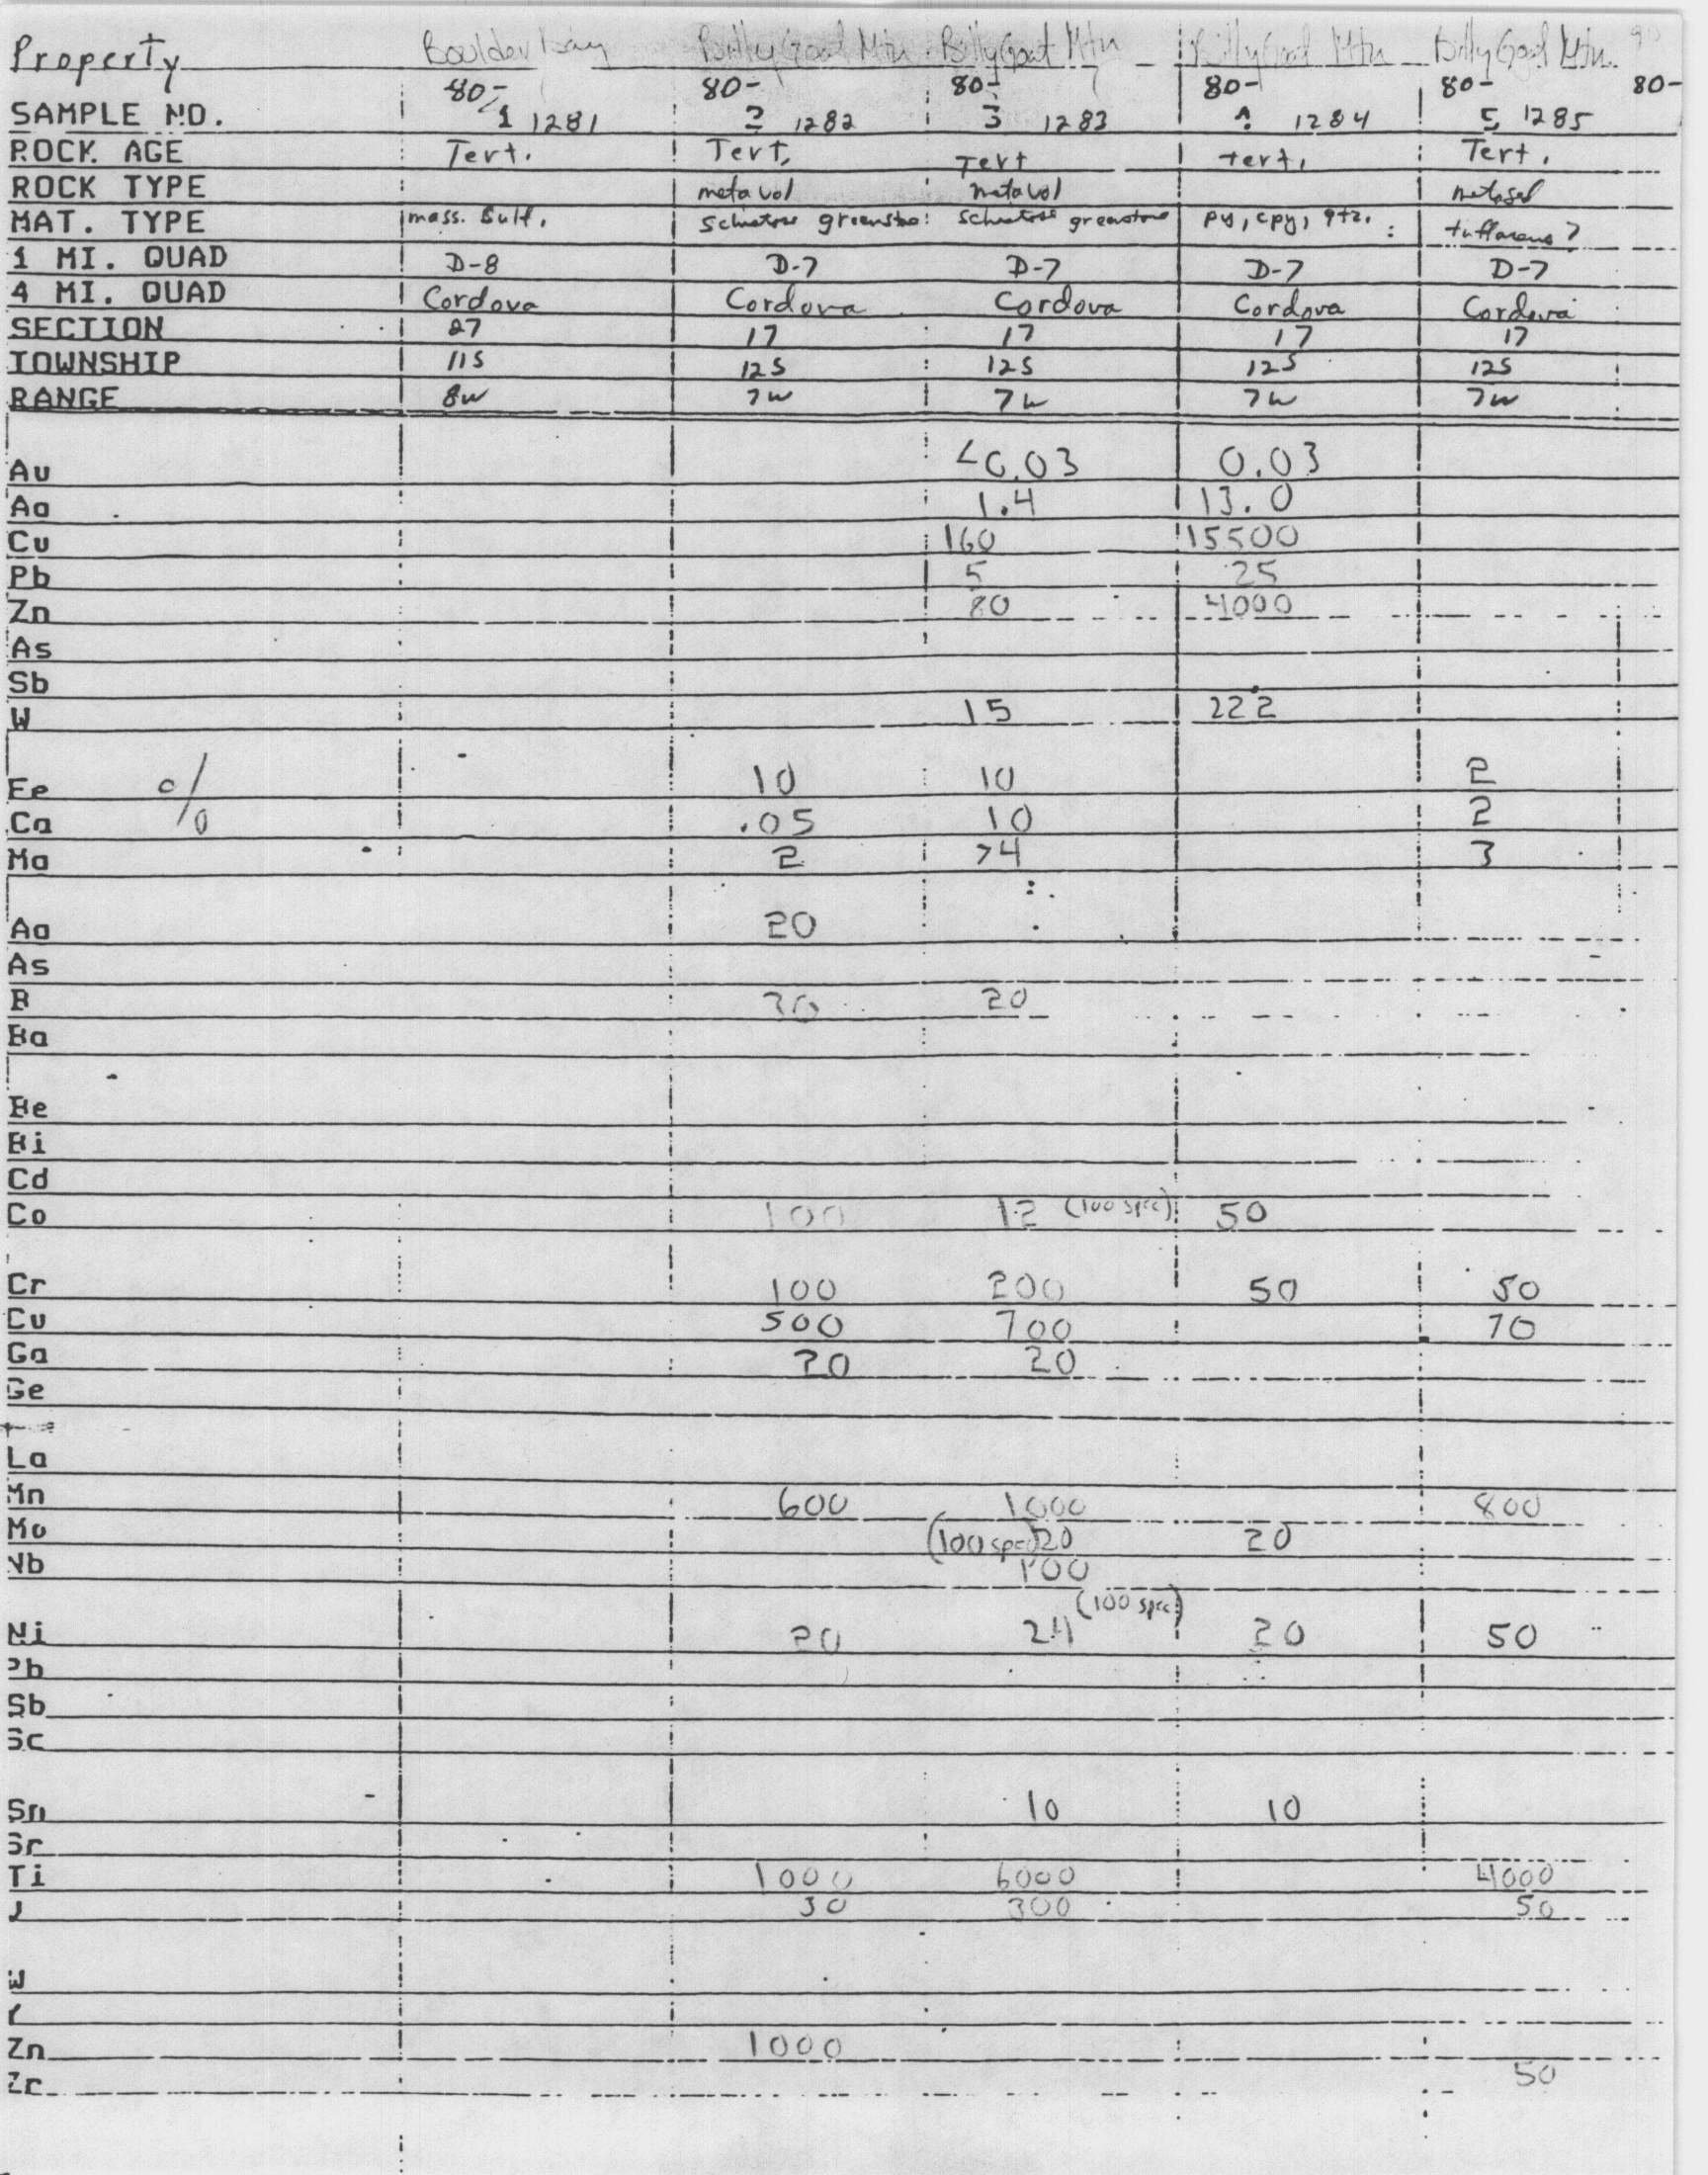 Property Boulder Bay Billy Goat Mtn Billy Goat Mtn Billy Goat Mtn Billy Goat Mtn.
80- 80- 80- 80- 80- 80-
SAMPLE NO. 1 1281 2 1282 3 1283 1284 5 1285
ROCK AGE Tert. Tert. Tert tert. Tert.
ROCK TYPE meta vol meta vol metased
MAT. TYPE mass. Sulf. Schistose Schistose greenstone py, cpy, qtz. tuffaceous?
1 MI. QUAD D-8 D-7 D-7 D-7 D-7
4 MI. QUAD Cordova Cordova Cordova Cordova Cordova
SECTION 27 17 17 17 17
TOWNSHIP 11S 12S 12S 12S 12S
RANGE 8W 7W 7W 7W 7W
Au <0.03 0.03
Ag 1.4 13.0
Cu 160 15500
Pb 5 25
Zn 80 4000
As
Sb
W 15 222
Fe % 10 10 2
Ca .05 10 2
Mg 2 >4 3
Ag 20
As
B 30 20
Ba
Be
Bi
Cd
Co 100 12 (100 spec) 50
Cr 100 200 50 50
Cu 500 700 70
Ga 20 20
Ge
La
Mn 600 1000 800
Mo (100 spec) 20 20
Nb 100
(100 spec)
Ni 20 24 20 50
Pb
Sb
Sc
Sn 10 10
Sr
Ti 1000 6000 4000
V 30 300 50
W
Y
Zn 1000
Zr 50